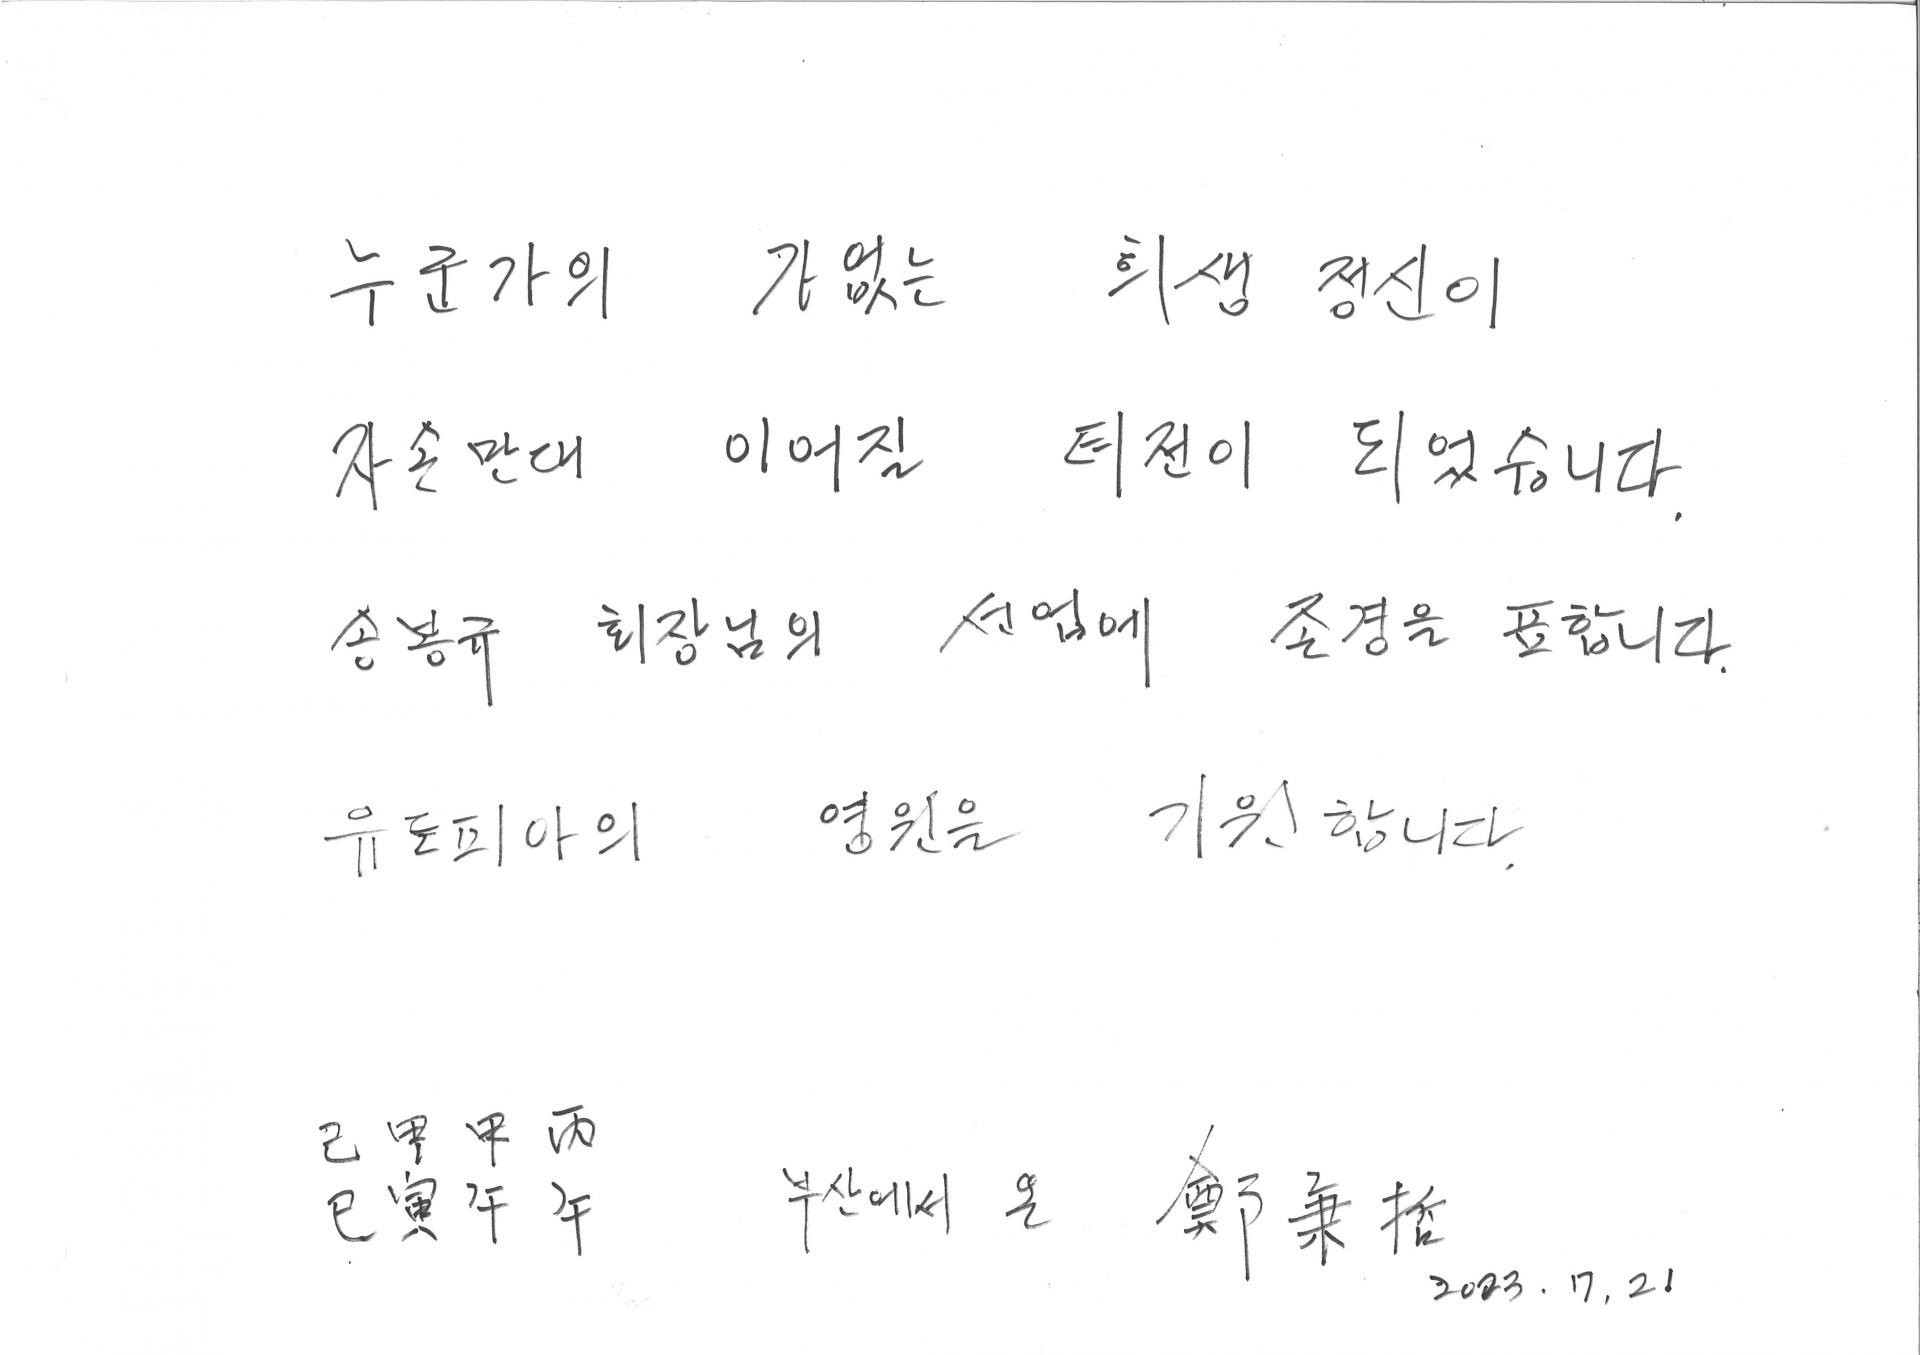 누군가의 가없는 희생 정신이
자손만대 이어질 터전이 되었습니다.
송봉규 회장님의 선업에 존경을 표합니다.
유토피아의 영원을 기원합니다.
己甲甲丙
巳寅午午
부산에서 온 鄭秉哲
2023. 7. 21